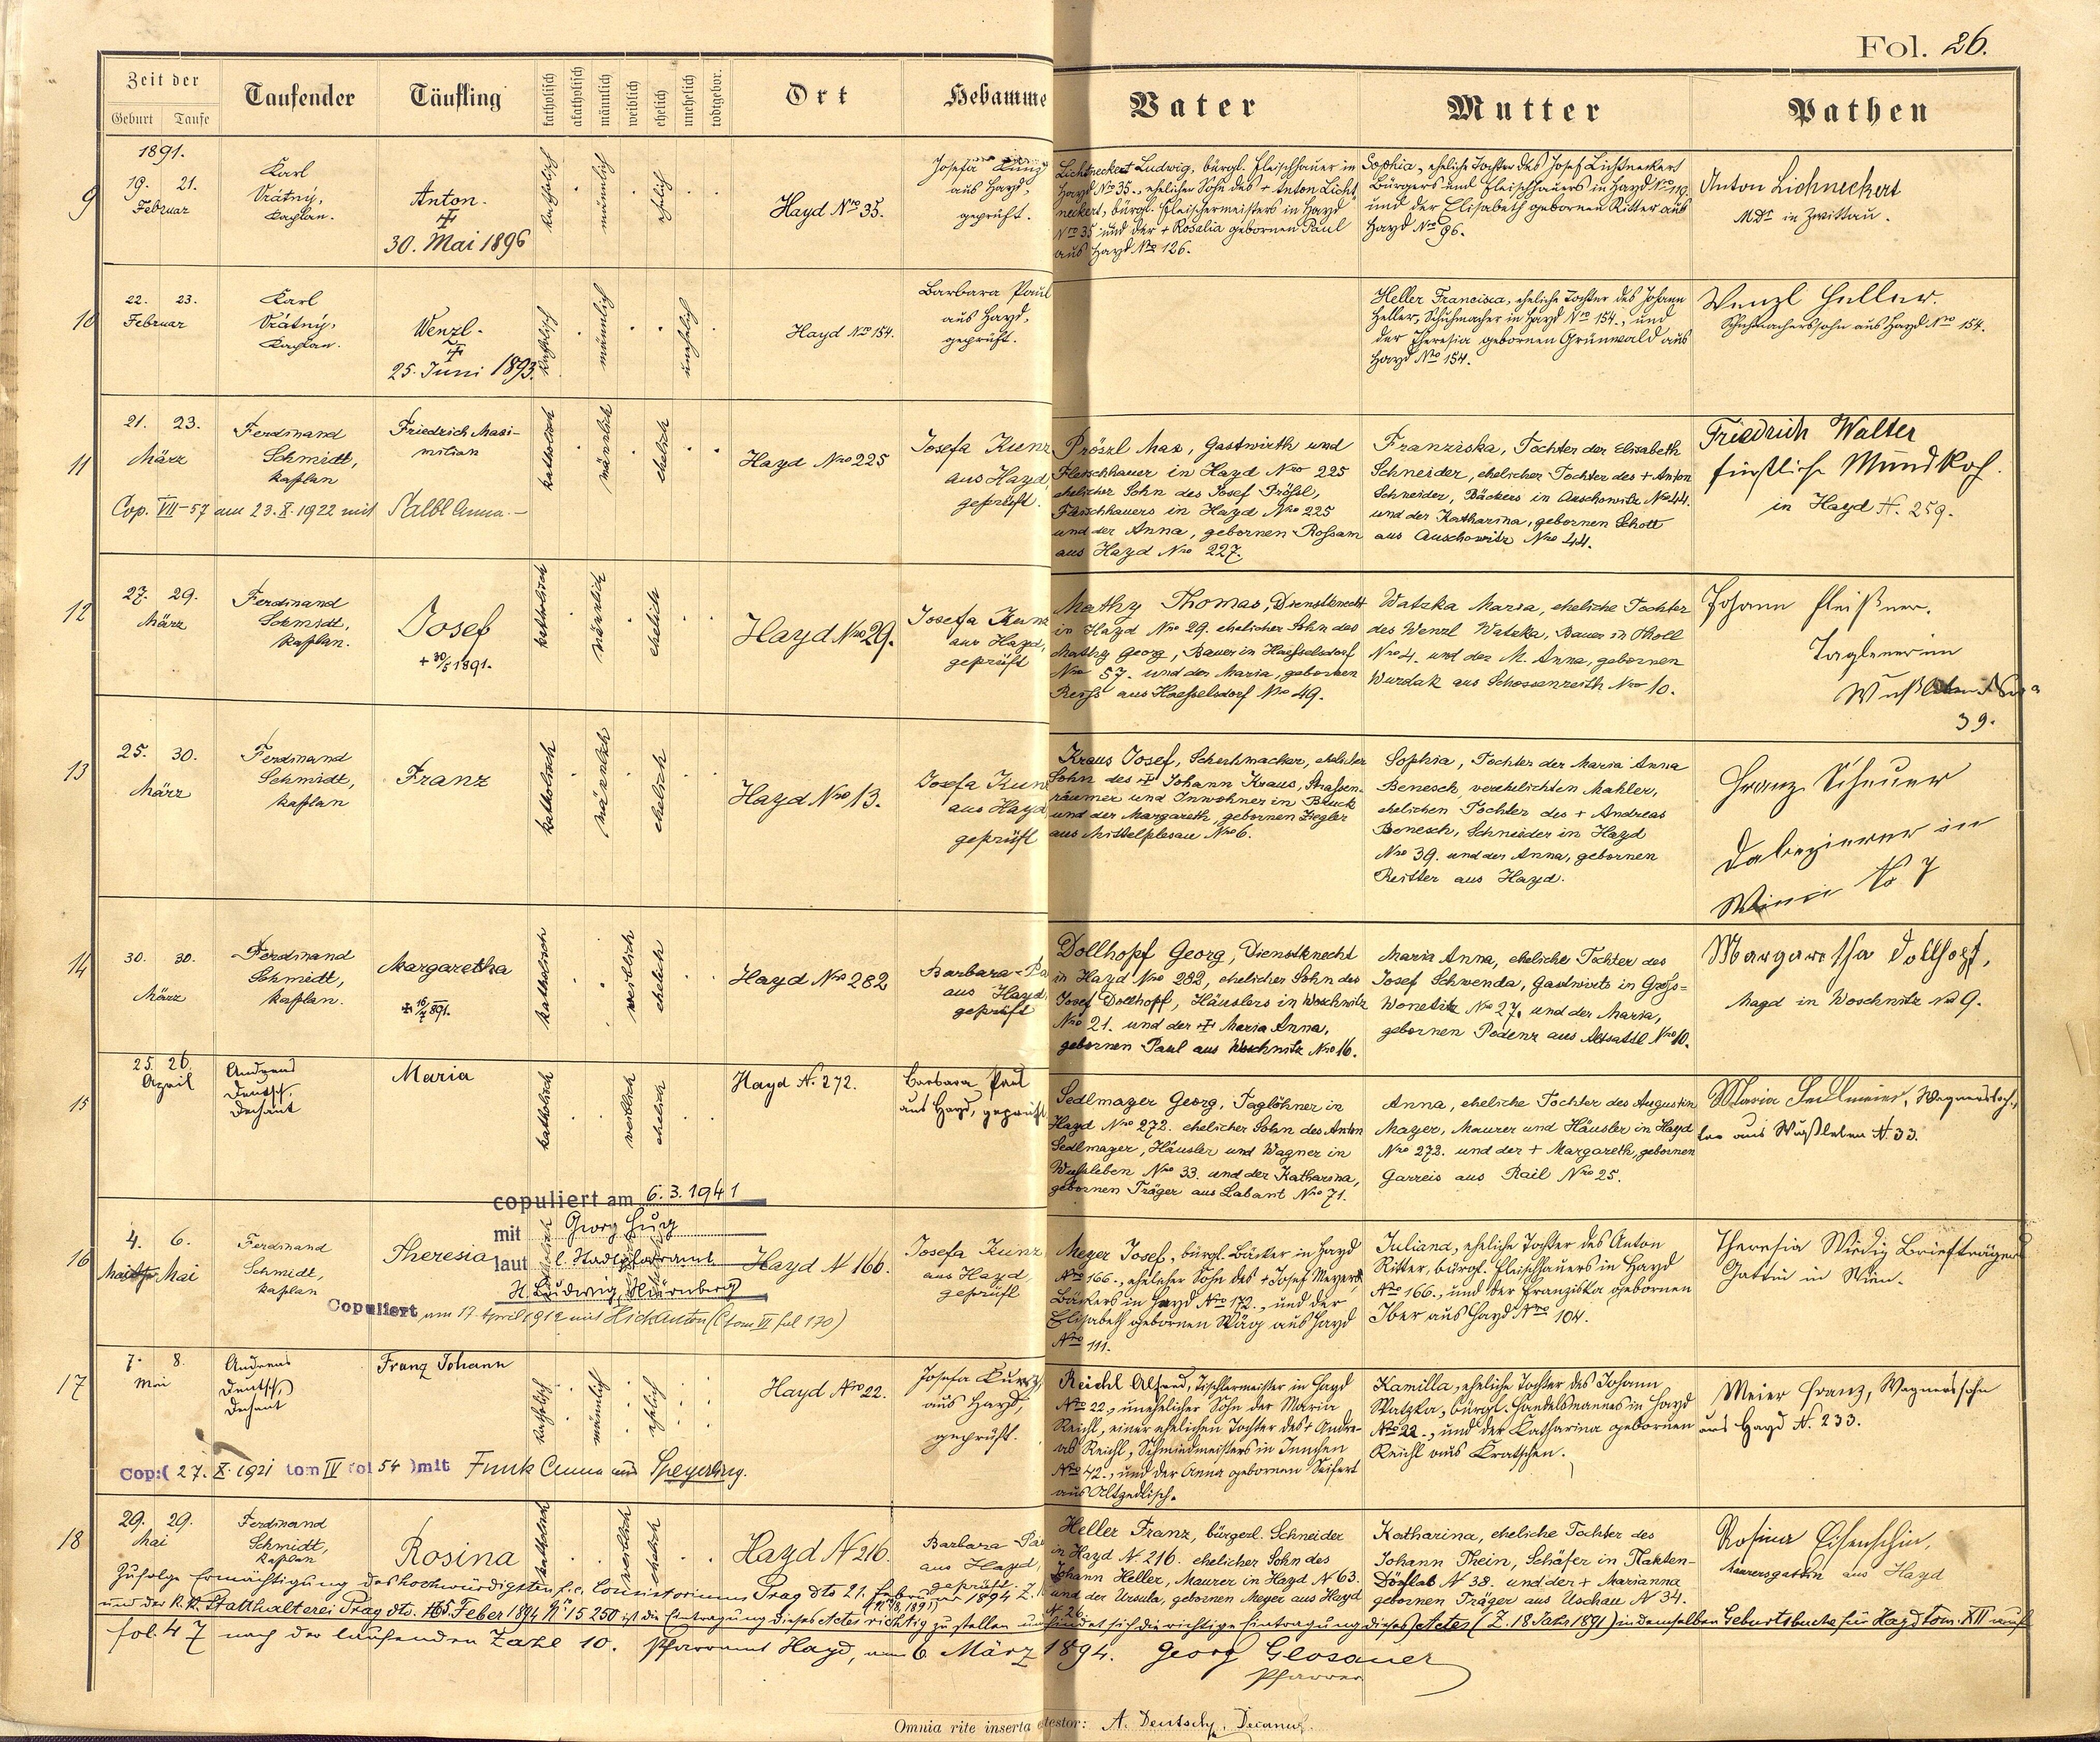 Fol. 26.
Zeit der
Geburt Taufe
Taufender
Täufling
katholisch
akatholisch
männlich
weiblich
ehelich
unehelich
todtgebor.
Ort
Hebamme
Vater
Mutter
Pathen
1891.
9
19. 21.
Februar
Karl
Vrátný,
Kaplan.
Anton.
30. Mai 1896
katholisch
männlich
ehelich
Hayd Nro 35.
Josefa Kunz
aus Hayd,
geprüft.
Lichtneckert Ludwig, bürgl. Fleischhauer in
Hayd Nro 35., ehelicher Sohn des + Anton Licht
neckert, bürgl. Fleischermeisters in Hayd
Nro 35 und der + Rosalia gebornen Paul
aus Hayd Nro 126.
Sophia, eheliche Tochter des Josef Lichtneckert
Bürgers und Fleischhauers in Hayd Nro 119.
und der Elisabeth gebornen Ritter aus
Hayd Nro 96.
Anton Lichneckert
MDr in Zwittau.
10
22. 23.
Februar
Karl
Vrátný,
Kaplan.
Wenzl.
25. Juni 1893.
katholisch
männlich
unehelich
Hayd Nro 154.
Barbara Paul
aus Hayd,
geprüft.
Heller Francisca, eheliche Tochter des Johann
Heller, Schuhmacher in Hayd Nro 154., und
der Theresia gebornen Grünwald aus
Hayd Nro 154.
Wenzl Heller.
Schuhmacherssohn aus Hayd Nro 154.
11
21. 23.
März
Ferdinand
Schmidt,
Kaplan
Friedrich Maxi-
milian
katholisch
männlich
ehelich
Hayd Nro 225
Josefa Kunz
aus Hayd,
geprüft.
Pröszl Max, Gastwirth und
Fleischhauer in Hayd Nro 225
ehelicher Sohn des Josef Prößl,
Fleischhauers in Hayd Nro 225
und der Anna, gebornen Roßam
aus Hayd Nro 227.
Franziska, Tochter der Elisabeth
Schneider, ehelicher Tochter des + Anton
Schneider, Bäckers in Auschowitz Nro 44.
und der Katharina, gebornen Schott
aus Auschowitz Nro 44.
Friedrich Walter
fürstliche Mundkoch.
in Hayd N. 259.
Cop. VII-57 am 23.X.1922 mit Salbl Anna.-
12
27. 29.
März
Ferdinand
Schmidt,
Kaplan.
Josef
+ 30/5 1891.
katholisch
männlich
ehelich
Hayd Nro 29.
Josefa Kunz
aus Hayd,
geprüft
Mathy Thomas, Dienstknecht
in Hayd Nro 29. ehelicher Sohn des
Mathy Georg, Bauer in Haesselsdorf
Nro 57. und der Maria, gebornen
Reiß aus Haesselsdorf Nro 49.
Watzka Maria, eheliche Tochter
des Wenzl Watzka, Bauer in Tholl
Nro 4. und der M. Anna, gebornen
Wurdak aus Schossenreith Nro 10.
Johann Pleißner.
39.
13
25. 30.
März
Ferdinand
Schmidt,
Kaplan
Franz
katholisch
männlich
ehelich
Hayd Nro 13.
Josefa Kunz
aus Hayd
geprüft
Kraus Josef, Schuhmacker, ehelicher
Sohn des Johann Kraus, Straßen-
räumer und Inwohner in Bruck
und der Margareth, gebornen Ziegler
aus Mittelplesau Nro 6.
Sophia, Tochter der Maria Anna
Benesch, verehelichten Mahler,
ehelichen Tochter des + Andreas
Benesch, Schneider in Hayd
Nro 39. und der Anna, gebornen
Reitter aus Hayd.
Franz Scheuer
14
30. 30.
März
Ferdinand
Schmidt,
Kaplan.
Margaretha
katholisch
weiblich
ehelich
Hayd Nro 282
Barbara Pa
aus Hayd,
geprüft
Dollhopf Georg, Dienstknecht
in Hayd Nro 282, ehelicher Sohn des
Josef Dollhopf, Häuslers in Woschnitz
Nro 21. und der Maria Anna,
gebornen Paul aus Woschnitz Nro 16.
Maria Anna, eheliche Tochter des
Josef Schwenda, Gastwirts in Groß-
Wonetitz Nro 27. und der Maria,
gebornen Podenz aus Nro 10.
Margaretha Dollhopf,
Magd in Woschnitz No 9.
15
25. 26.
April
Andreas
Deutsch,
Dechant
Maria
katholisch
weiblich
ehelich
Hayd N. 272.
Barbara Paul
aus Hayd, geprüft
Sedlmayer Georg, Taglöhner in
Hayd Nro 272. ehelicher Sohn des Anton
Sedlmayer, Häusler und Wagner in
Wußleben Nro 33. und der Katharina,
gebornen Träger aus Labant Nro 71.
Anna, eheliche Tochter des Augustin
Mayer, Maurer und Häusler in Hayd
Nro 272. und der + Margareth, gebornen
Garreis aus Rail Nro 25.
Maria Sedlmeier, Wagnerstoch-
ter aus Wußleben N. 33.
copuliert am 6.3.1941
mit Georg Hüg
laut l. Stadtpfarramt
H. Ludwig, Nürnberg
16
4. 6.
Mai
Ferdinand
Schmidt,
Kaplan
Theresia
Hayd N 166.
Josefa Kunz
aus Hayd,
geprüft
Meyer Josef, bürgl. Bäcker in Hayd
Nro 166., ehelicher Sohn des + Josef Meyers,
Bäckers in Hayd Nro 172., und der
Elisabeth gebornen Wäg aus Hayd
Nro 111.
Juliana, eheliche Tochter des Anton
Ritter, bürgl. Fleischhauers in Hayd
Nro 166., und der Franziska gebornen
Iber aus Hayd Nro 104.
Theresia Wiedig Briefträgers
Gattin in Wien.
Copuliert am 17 April 1912 mit Hick Anton (Tom VI fol 170)
17
7. 8.
Mai
Andreas
Deutsch,
Dechant
Franz Johann
katholisch
männlich
ehelich
Hayd Nro 22.
Josefa Kunz,
aus Hayd,
geprüft.
Reichl Alfred, Tischlermeister in Hayd
Nro 22., unehelicher Sohn der Maria
Reichl, einer ehelichen Tochter des + Andre-
as Reichl, Schmiedmeisters in Innchen
Nro 42., und der Anna gebornen Seifert
aus Altzedlisch.
Kamilla, eheliche Tochter des Johann
Watzka, bürgl. Handelsmannes in Hayd
Nro 22., und der Katharina gebornen
Reichl aus Kratschen.
Meier Franz, Wagnerssohn
aus Hayd N. 233.
Cop:( 27. X. 1921 tom IV fol 54 )mit Funk Anna aus Speyerling.
18
29. 29.
Mai
Ferdinand
Schmidt,
Kaplan
Rosina
katholisch
weiblich
ehelich
Hayd N 216.
Barbara Pa
aus Hayd,
geprüft.
Heller Franz, bürgerl. Schneider
in Hayd N. 216. ehelicher Sohn des
Johann Heller, Maurer in Hayd N 63.
und der Ursula, gebornen Meyer aus Hayd
N 26.
Katharina, eheliche Tochter des
Johann Thein, Schäfer in Hakken-
Dörflas N 38. und der + Marianna
gebornen Träger aus Uschau N 34.
Rosina Eisenschin,
Maurersgattin aus Hayd
Zufolge Ermächtigung des hochwürdigsten f.e. Consistoriums Prag dto 21. Februar 1894 Z.
und der k.k. Statthalterei Prag dto. 5. Feber 1894 No 15250 ist die Eintragung dieses Actes richtig zu stellen und findet sich die richtige Eintragung dieses Actes (Z. 18 Jahr 1891) in demselben Geburtsbuche für Hayd Tom. XII auf
fol. 47 nach der laufenden Zahl 10. Pfarramt Hayd, am 6. März 1894. Georg Glosauer
Pfarrer
Omnia rite inserta testor: A. Deutsch, Decanus.